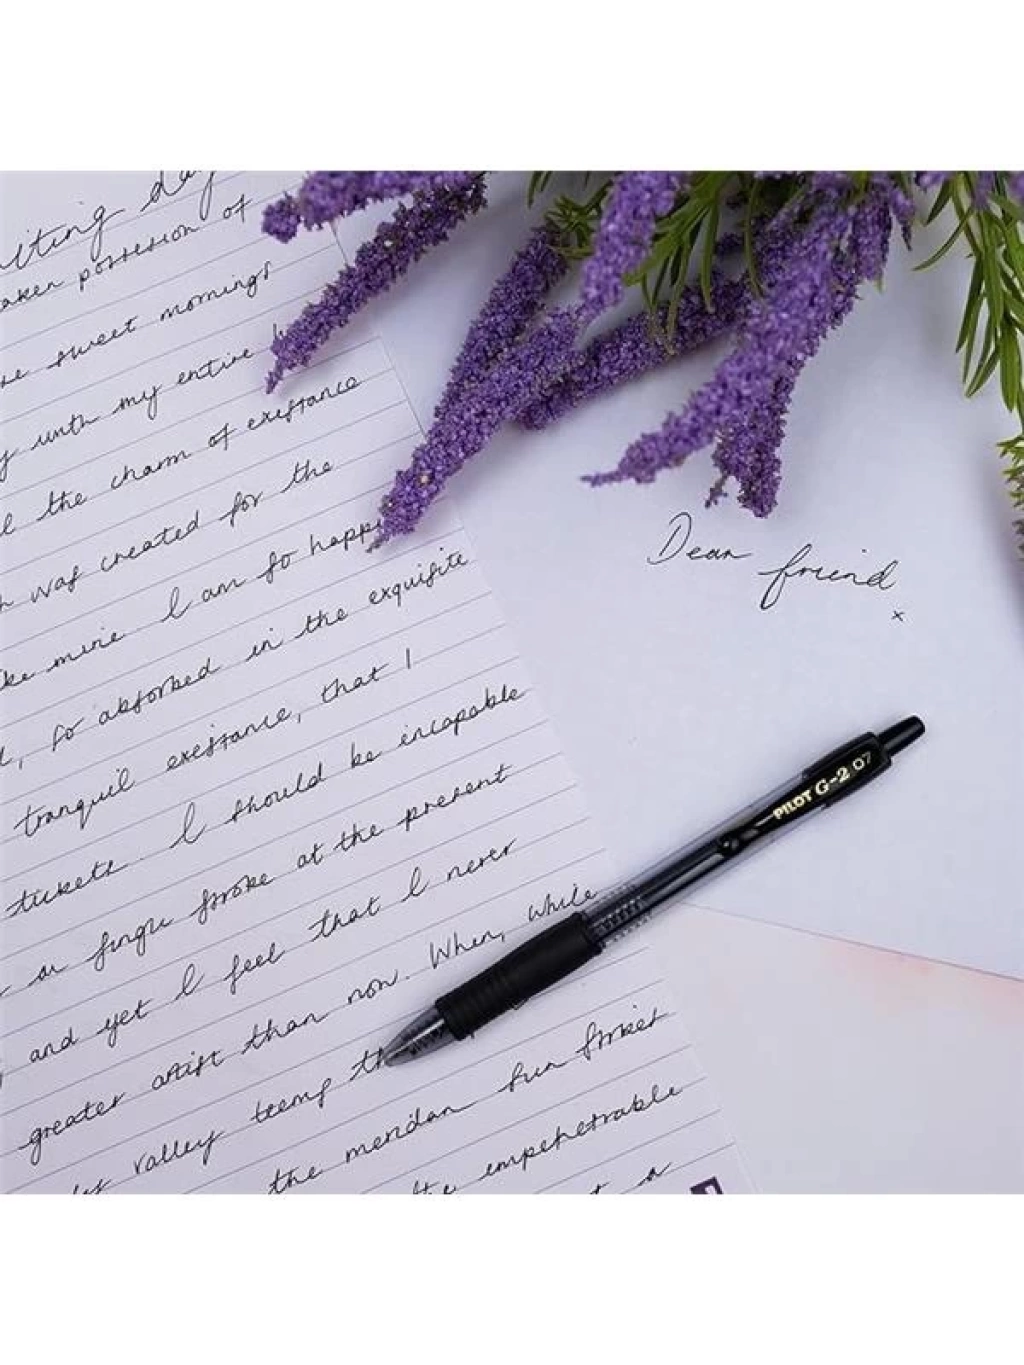 day
possession of
sweet mornings
with my entire
the charm of existance
was created for the
mine I am so happy
so absorbed in the exquisite
tranquil existance, that I
tickets I should be incapable
single stroke at the present
and yet I feel that I never
greater artist than now. When, while
valley teems
the meridan sun strikes
the impenetrable
a
Dear friend
x
PILOT G-2 07